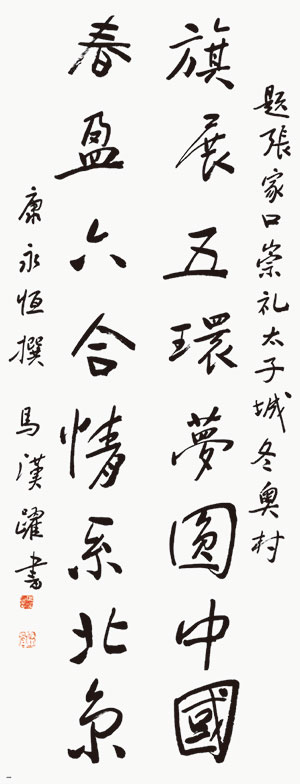 题張家口崇礼太子城冬奥村
旗展五環夢圓中國
春盈六合情系北京
康永恒撰 馬漢躍書